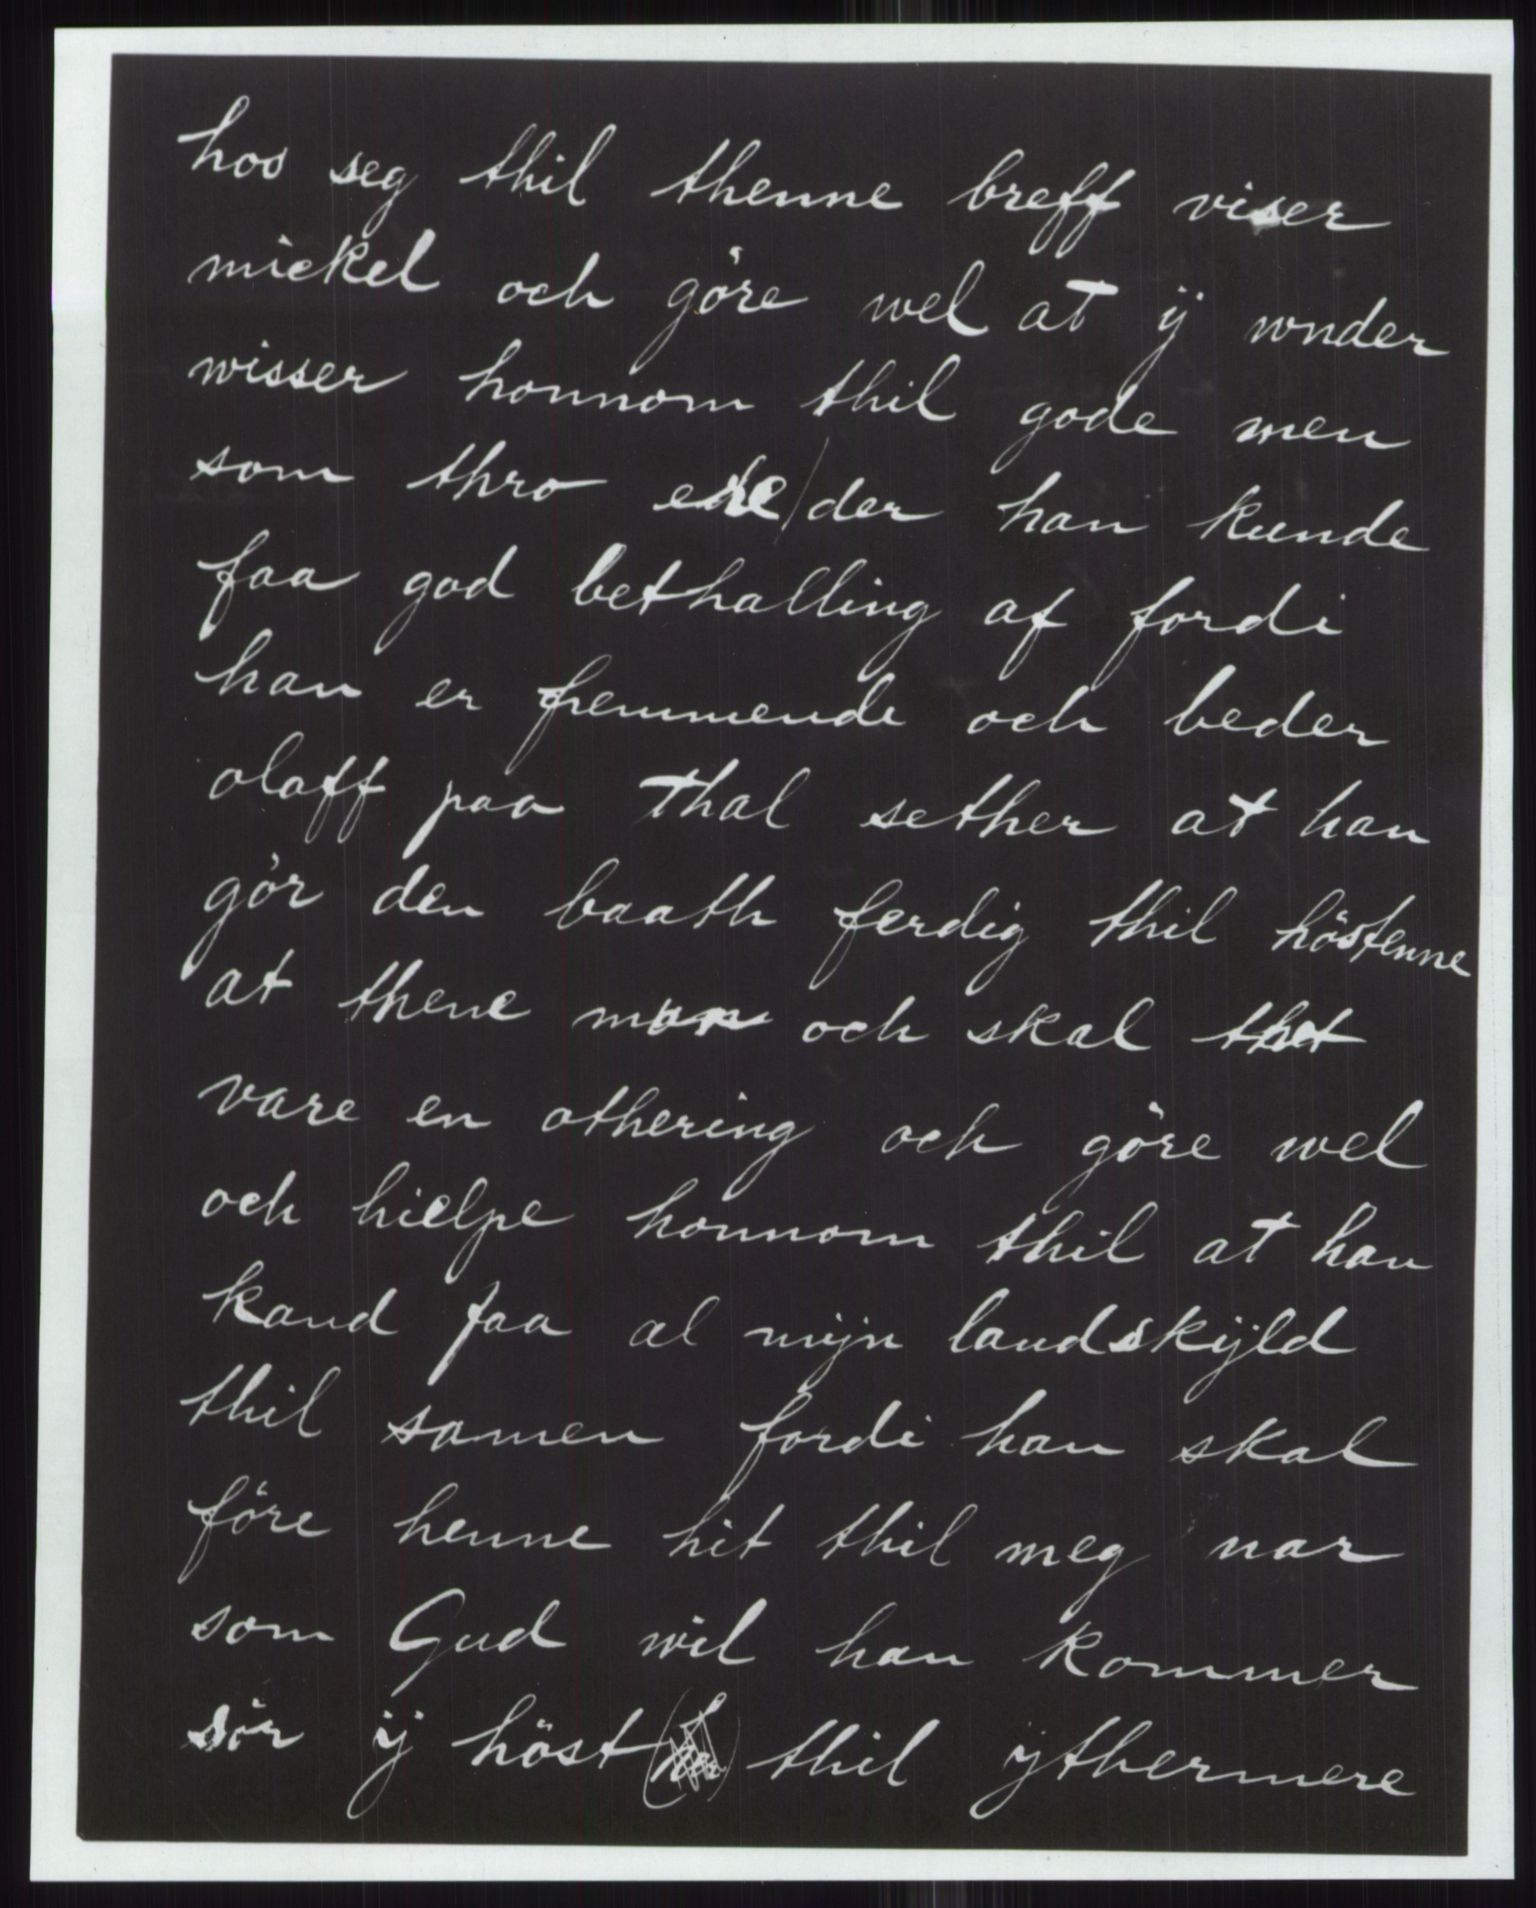 hos seg thil thenne breff viser
mickel och göre wel at ÿ wnder
wisser honnom thil gode men
som thro ere der han kunde
faa god bethalling af fordi
han er fremmende och beder
olaff paa Thal sether at han
gör den baath ferdig thil höstenne
at thene man och skal thet
vare en othering och göre wel
och hielpe honnom thil at han
kand faa al mijn landskÿld
thil samen fordi han skal
före henne hit thil meg nar
som Gud wil han kommer
sör ÿ höst thil ÿthermere